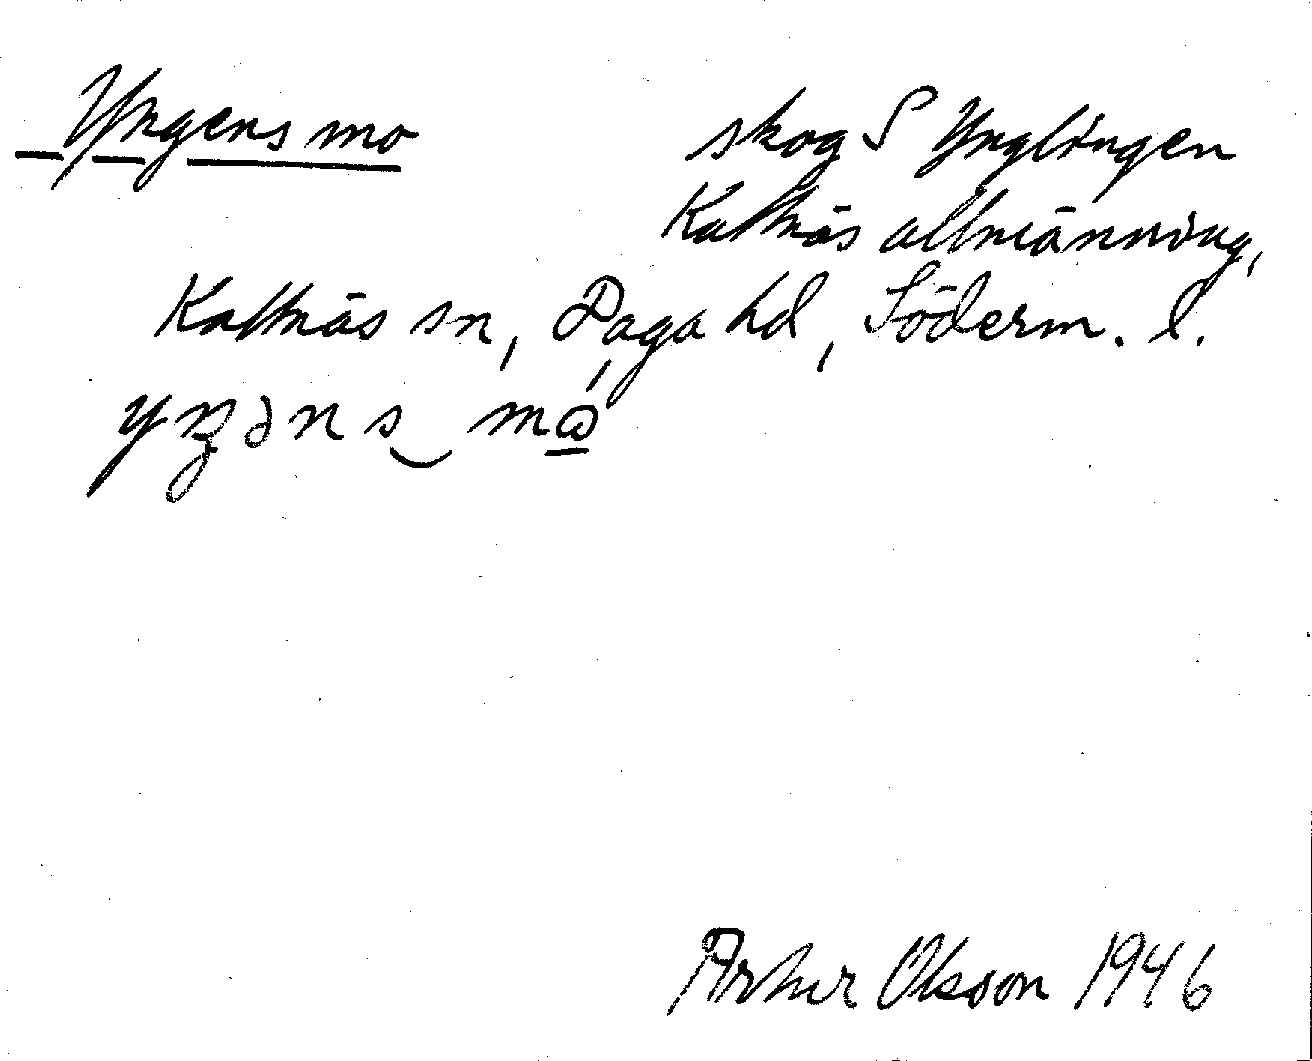 Yngens mo
skog S Ynglingen
Kattnäs allmänning,
Kattnäs sn, Daga hd, Söderm. l.
yŋəns mω
Arthur Olsson 1946